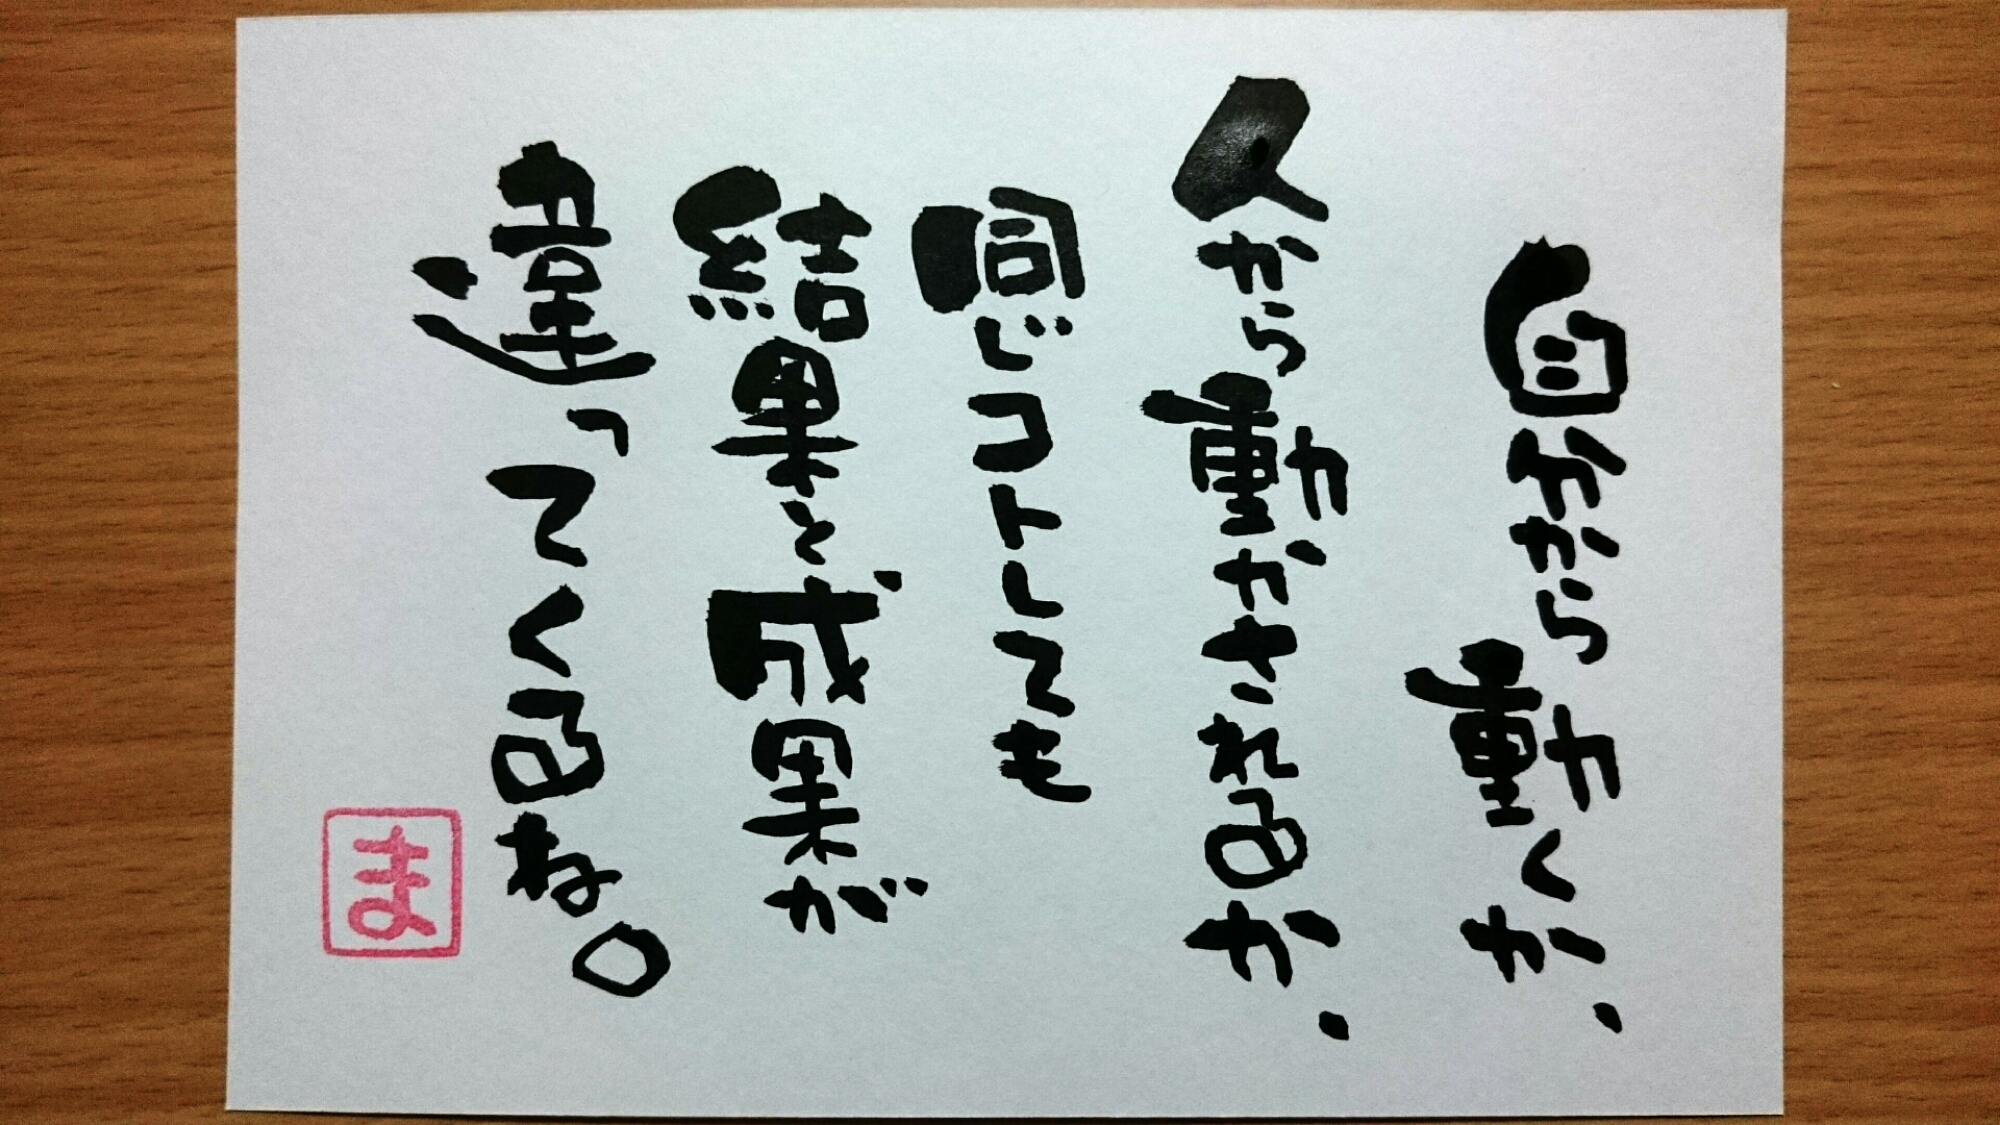 自分から動くか、
人から動かされるか、
同じコトしても
結果と成果が
違ってくるね。
ま